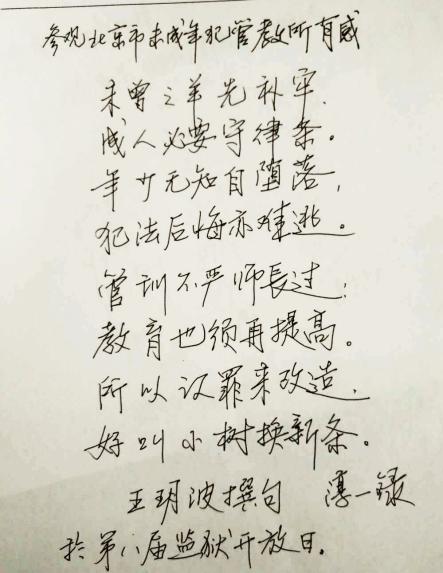 参观北京市未成年犯管教所有感
未曾亡羊先补牢，
成人必要守律条。
年少无知自堕落，
犯法后悔亦难逃。
管训不严师長过；
教育也须再提高。
所以认罪来改造，
好叫小树换新条。
王玥波撰句 淳一録
于第八届监狱开放日。